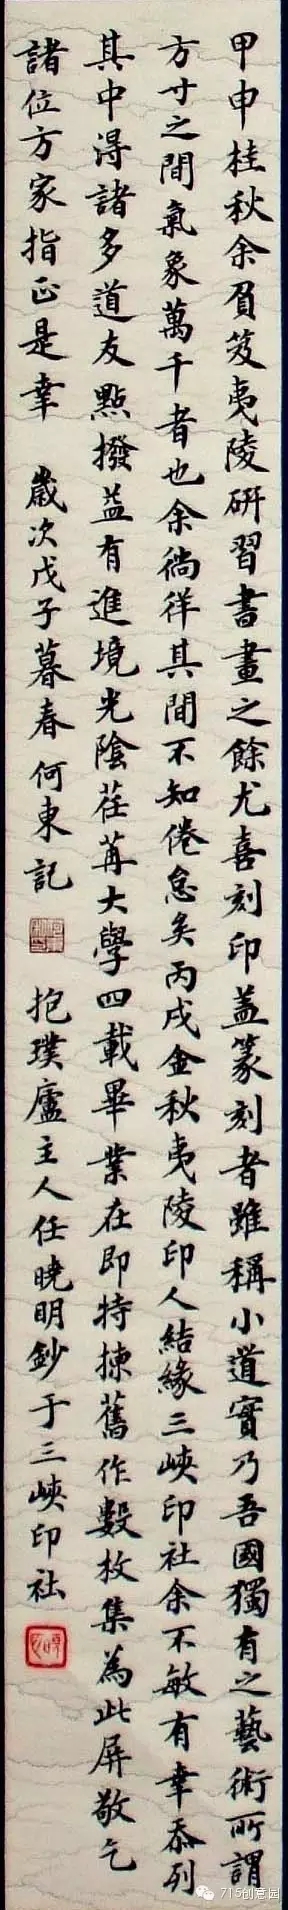 甲申桂秋余負笈夷陵研習書畫之餘尤喜刻印蓋篆刻者雖稱小道實乃吾國獨有之藝術所謂
方寸之間氣象萬千者也余徜徉其間不知倦怠矣丙戌金秋夷陵印人結緣三峽印社余不敏有幸忝列
其中得諸多道友點撥益有進境光陰荏苒大學四載畢業在即特揀舊作數枚集為此屏敬乞
諸位方家指正是幸 歲次戊子暮春何東記 抱璞廬主人任曉明鈔于三峽印社
715创意园